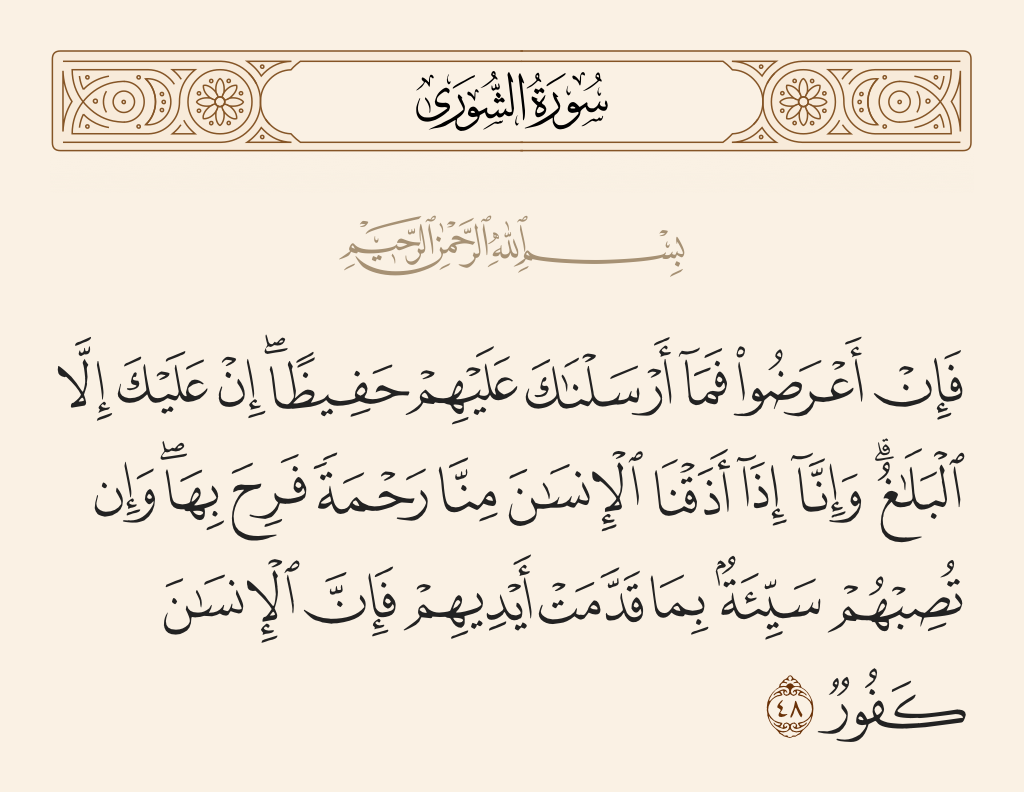 سُورَةُ الشُّورَىٰ
بِسْمِ ٱللَّهِ ٱلرَّحْمَٰنِ ٱلرَّحِيمِ
فَإِنْ أَعْرَضُوا۟ فَمَآ أَرْسَلْنَٰكَ عَلَيْهِمْ حَفِيظًا ۖ إِنْ عَلَيْكَ إِلَّا
ٱلْبَلَٰغُ ۗ وَإِنَّآ إِذَآ أَذَقْنَا ٱلْإِنسَٰنَ مِنَّا رَحْمَةً فَرِحَ بِهَا ۖ وَإِن
تُصِبْهُمْ سَيِّئَةٌۢ بِمَا قَدَّمَتْ أَيْدِيهِمْ فَإِنَّ ٱلْإِنسَٰنَ
كَفُورٌ ٤٨